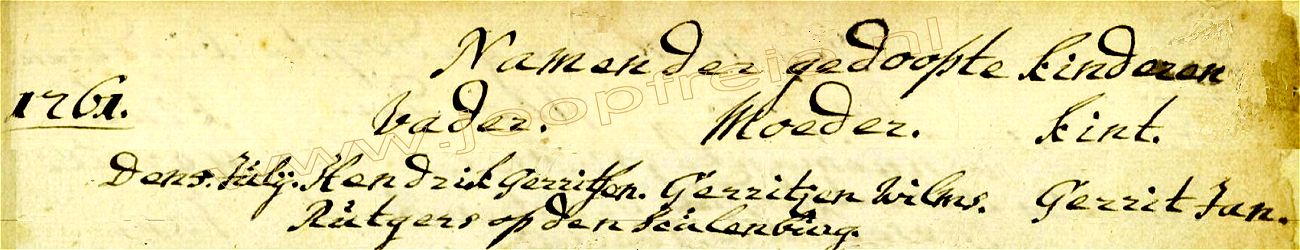 Namen der gedoopte kinderen
1761.
Vader. Moeder. kint.
Den 5. Julÿ. Hendrik Gerritsen. Gerritjen Wilms. Gerrit Jan.
Rütgers op den
www.joopfreie.nl